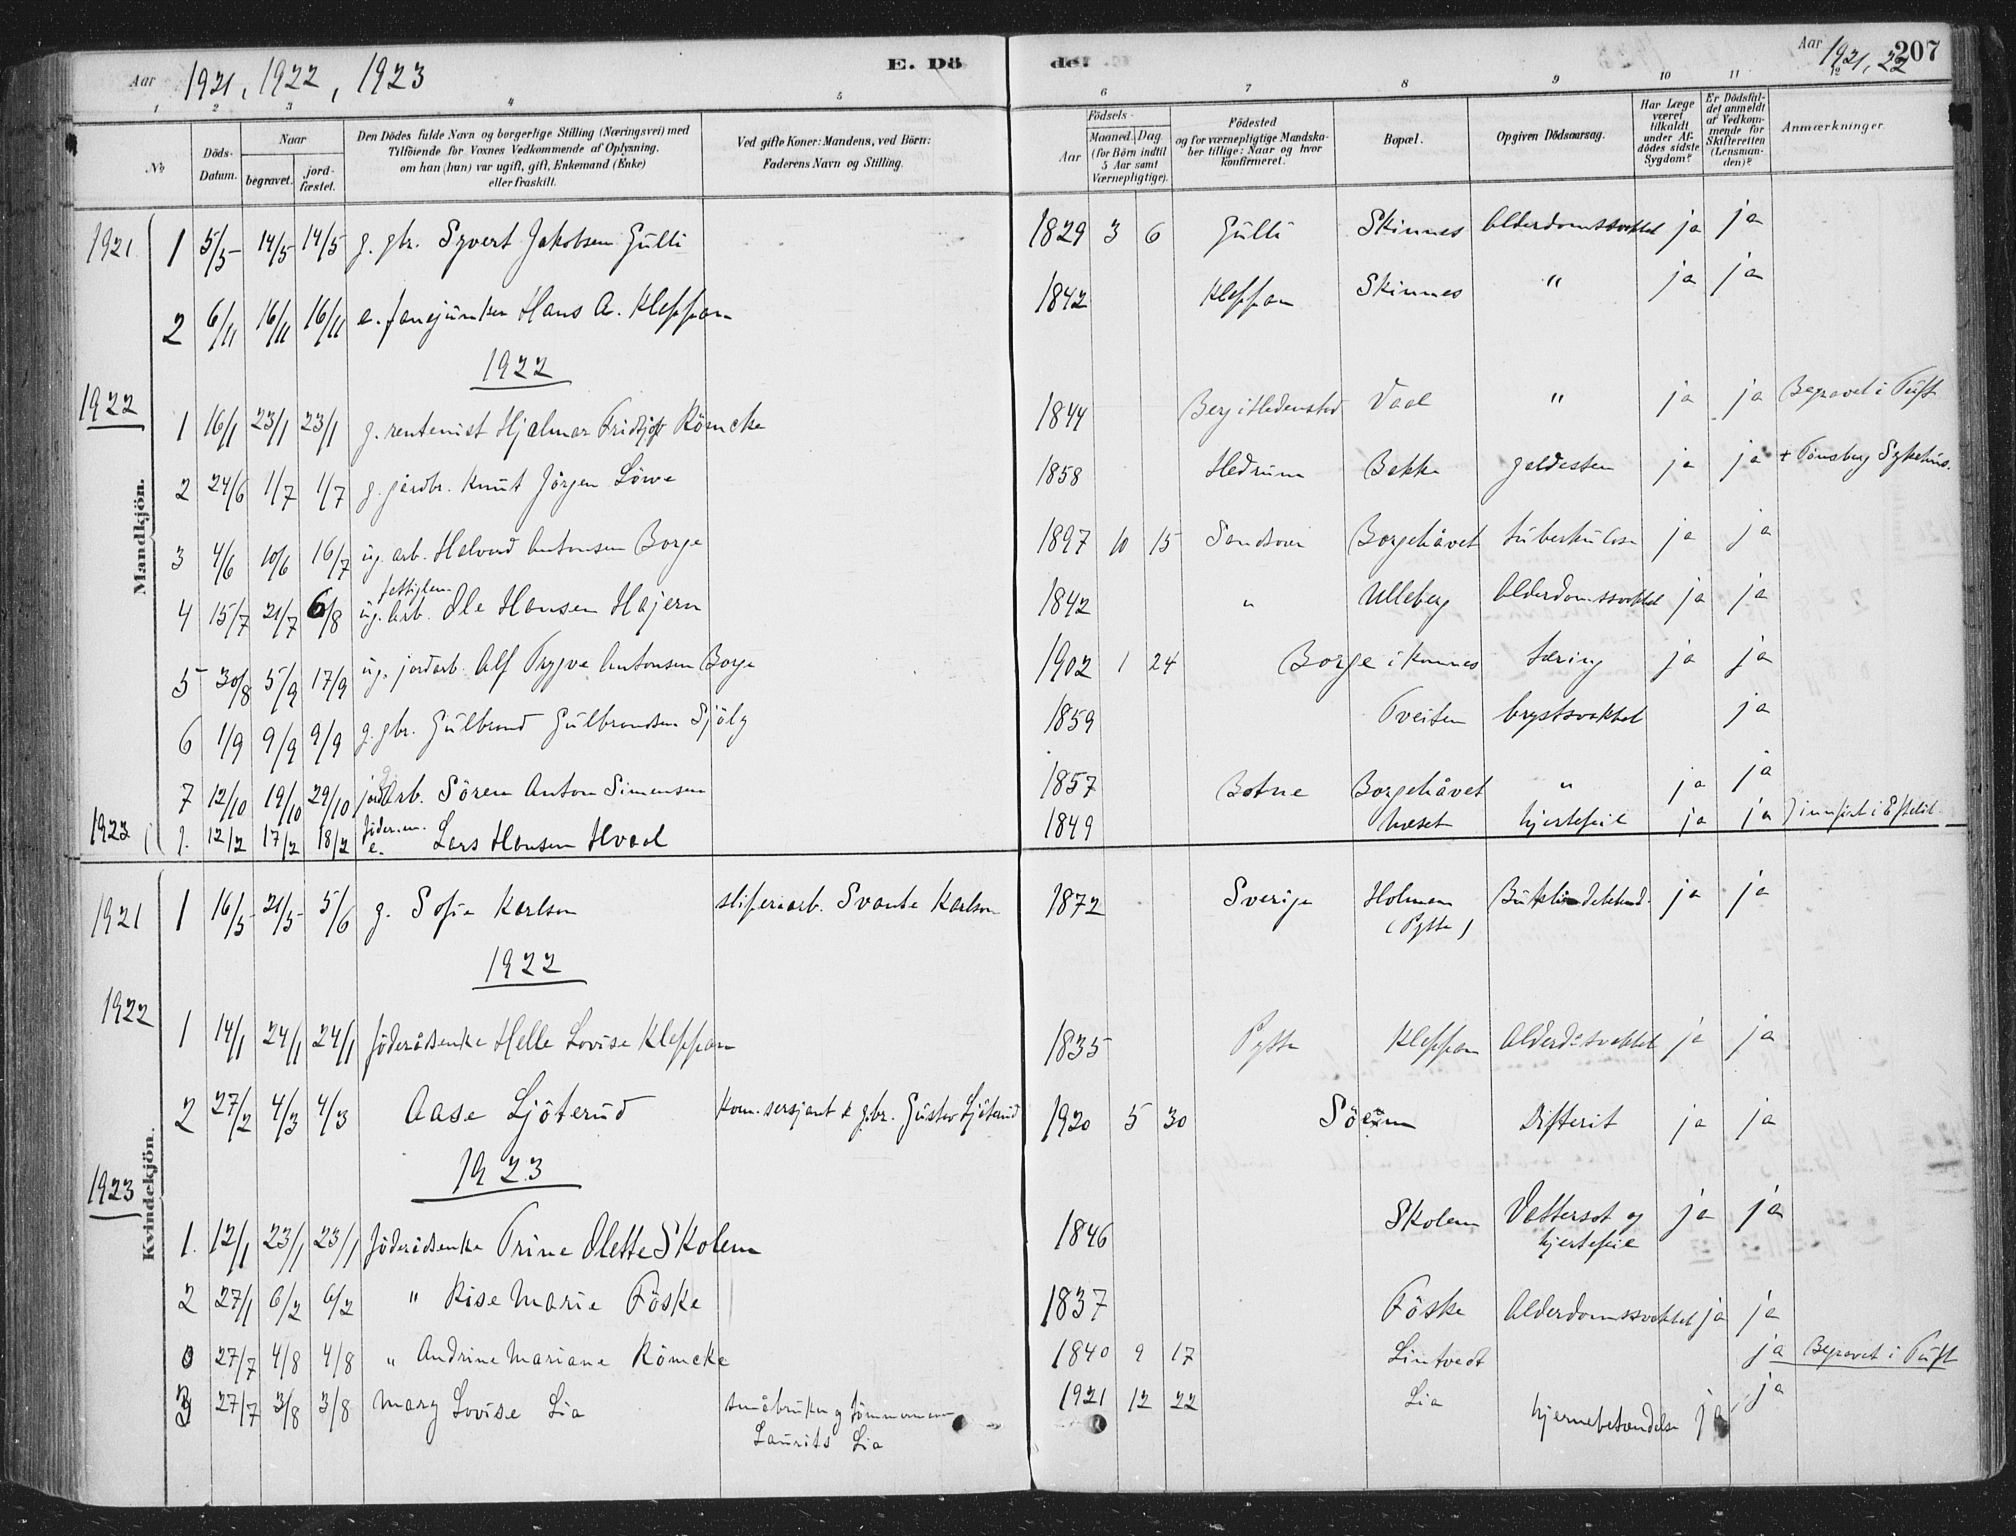 Aar 1921, 1922, 1923
E. Dö
de:
Aar 1921, 22
207
1 2 3 4 5 6 7 8 9 10 11 12
No
Döds-Datum.
Naar
begravet.
jord-fæstet.
Den Dödes fulde Navn og borgerlige Stilling (Næringsvei) med
Tilföiende for Voxnes Vedkommende af Oplysning.
om han (hun) var ugift, gift, Enkemand (Enke)
eller fraskilt.
Ved gifte Koner: Mandens, ved Börn:
Faderens Navn og Stilling.
Födsels-
Aar
Maaned. Dag.
(for Börn indtil 5 Aar samt Værnepligtige).
Födested
og for værnepligtige Mandskaber tillige: Naar og hvor konfirmeret.
Bopæl.
Opgiven Dödsaarsag.
Har Læge været tilkaldt under Afdödes sidste Sygdom?
Er Dödsfaldet anmeldt af Vedkommende for Skifteretten (Lensmanden)?
Anmærkninger.
Mandkjön.
1921 1 5/5 14/5 14/5 g. gbr. Syvert Jakobsen Gulli 1829 3 6 Gulli Skinnes Alderdomssvakhet ja ja
2 6/11 16/11 16/11 e. fanejunker Hans A. Kleppan 1842 Kleppan Skinnes " ja ja
1922
1922 1 16/1 23/1 23/1 g. rentenist Hjalmar Fridtjof Römcke 1844 Berg i Hedenstad Vaal " ja ja Begravet i Tuft
2 24/6 1/7 1/7 g. jordbr. Knut Jörgen Löwe 1858 Hedrum Bakke galdesten ja ja + Tönsberg Sykehus.
3 4/6 10/6 16/7 ug. arb. Halvord Antonsen Borge 1897 10 15 Sandsvær Borgehåvet tuberkulose ja ja
4 15/7 21/7 6/8 ug. arb. Ole Hansen Hajern 1842 " Ulleberg Alderdomssvakhet ja ja
5 30/8 5/9 17/9 ug. jordarb. Alf Trygve Antonsen Borge 1902 1 24 Borge i Komnes tæring ja ja
6 1/9 9/9 9/9 g. gbr. Gulbrand Gulbrandsen Sjöly 1859 Tveiten brystsvakhet ja
7 12/10 19/10 29/10 jordarb. Sören Anton Simensen 1857 Botne Borgehåvet " ja ja
1923 1. 12/2 17/2 18/2 e. Lars Hansen Hvaal 1849 hjertefeil ja ja
Kvindekjön.
1921 1 16/5 21/5 5/6 g. Sofie Karlsen sliperiarb. Svante Karlsen 1872 Sverige Holmen (Pytte) ja ja
1922
1922 1 14/1 24/1 24/1 föderådsenke Helle Lovise Kleppan 1835 Pytte Kleppan Alderd.svakhet ja ja
2 27/2 4/3 4/3 Aase Ljöterud Kom.sersjant & gbr. Gustav Ljöterud 1920 5 30 Difterit ja ja
1923
1923 1. 12/1 23/1 23/1 föderådsenke Trine Olette Skolem 1846 Skolem Vattersot og hjertefeil ja ja
2 27/1 6/2 6/2 " Rise Marie Föske 1837 Föske Alderdomssvakhet ja ja
0 27/7 4/8 4/8 " Andrine Mariane Römcke 1840 9 17 Lintvedt ja Begravet i Tuft
3 27/7 3/8 3/8 Mary Lovise Lia småbruker og tömmermann Laurits Lia 1921 12 22 Lia hjernebetændelse ja ja